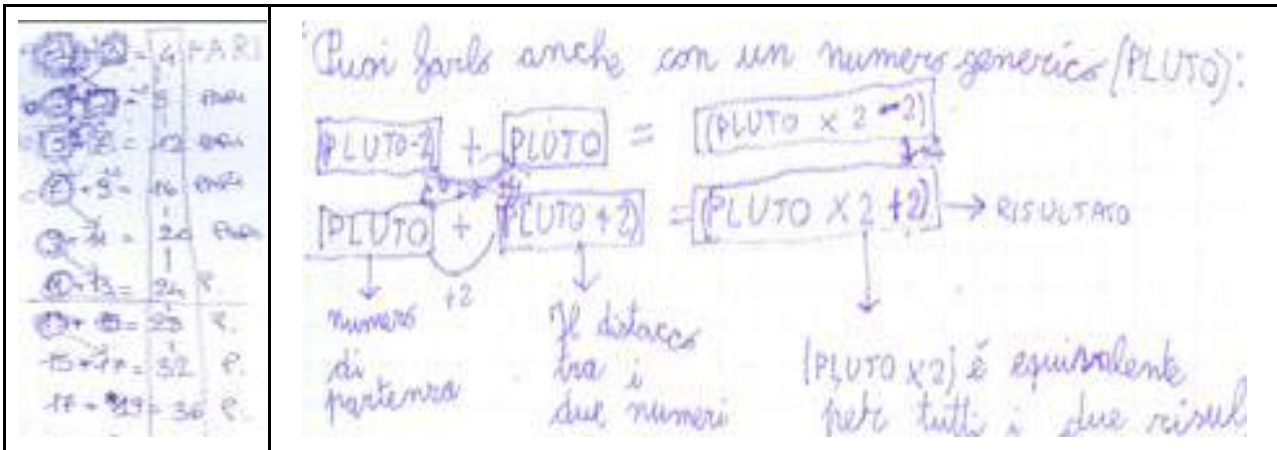 1 + 3 = 4 PARI
3 + 5 = 8 PARI
5 + 7 = 12 PARI
7 + 9 = 16 PARI
9 + 11 = 20 PARI
11 + 13 = 24 P.
13 + 15 = 28 P.
15 + 17 = 32 P.
17 + 19 = 36 P.
Puoi farlo anche con un numero generico (PLUTO):
PLUTO-2 + PLUTO = (PLUTO x 2 - 2)
PLUTO + (PLUTO + 2) = (PLUTO X 2 + 2) → RISULTATO
+2
numero di partenza
Il distacco tra i due numeri
(PLUTO x 2) é equivalente
per tutti i due risul